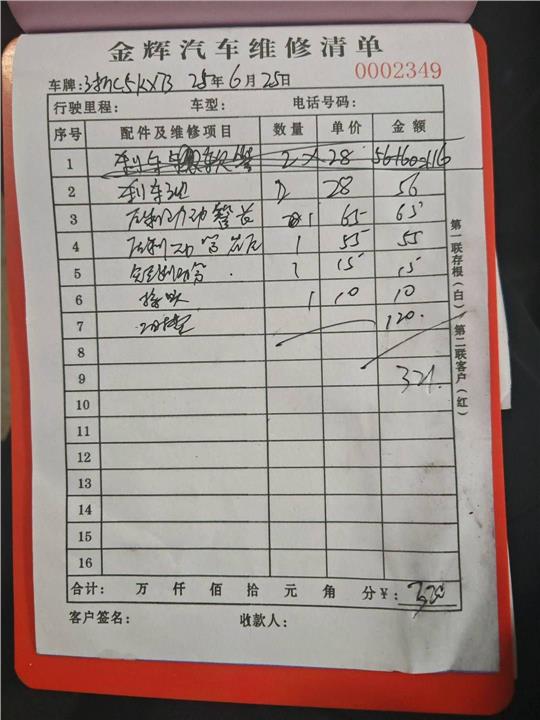 金辉汽车维修清单
0002349
车牌: C5KX73 25年6月25日
行驶里程: 车型: 电话号码:
序号 配件及维修项目 数量 单价 金额
1 刹车 2 × 28 56+60=116
2 刹车油 2 28 56
3 1 65 65
4 1 55 55
5 1 15 15
6 1 10 10
7 120.
8
9 321.
10
11
12
13
14
15
16
合计: 万 仟 佰 拾 元 角 分 ¥: 320
客户签名: 收款人:
第一联存根(白) 第二联客户(红)